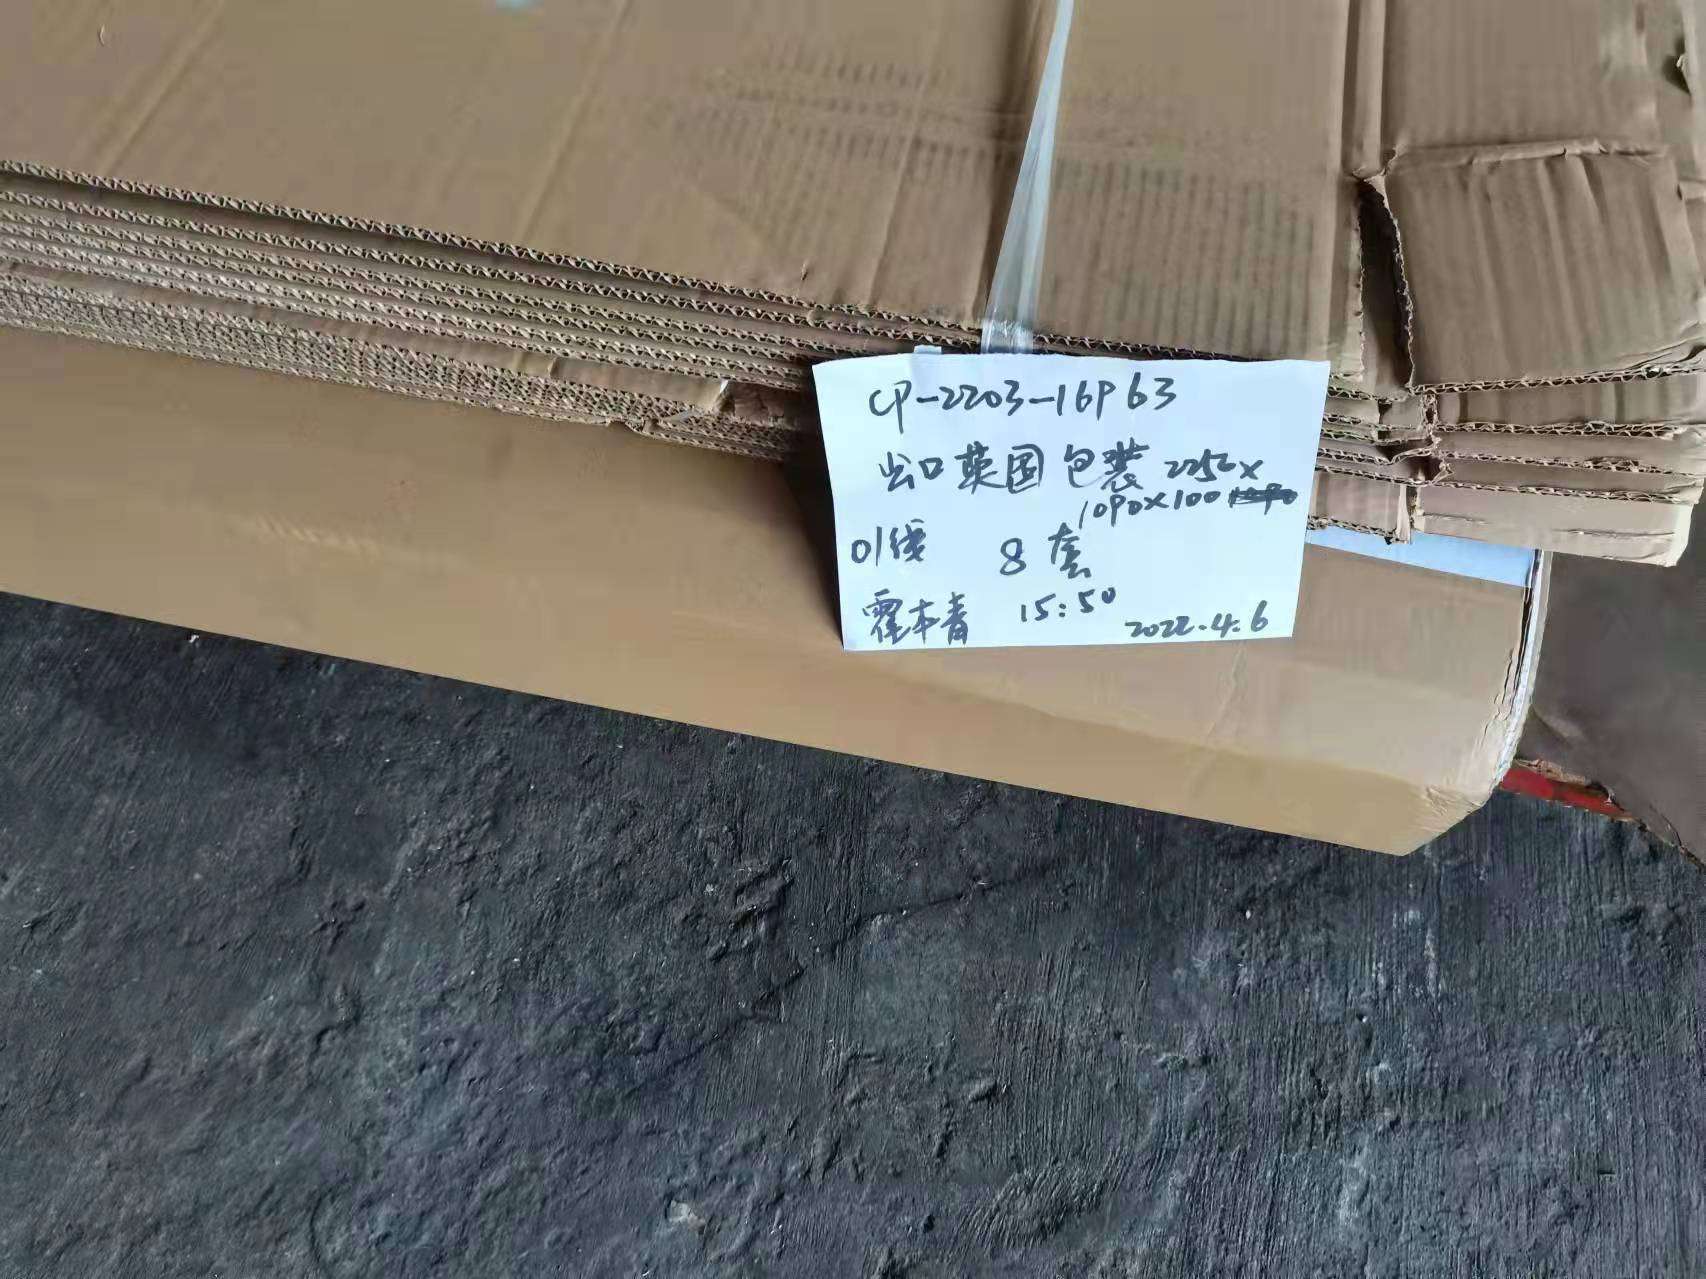 CP-2203-16P63
出口英国包装 2252×
1090×100
01线 8套
霍本青 15:50 2022.4.6